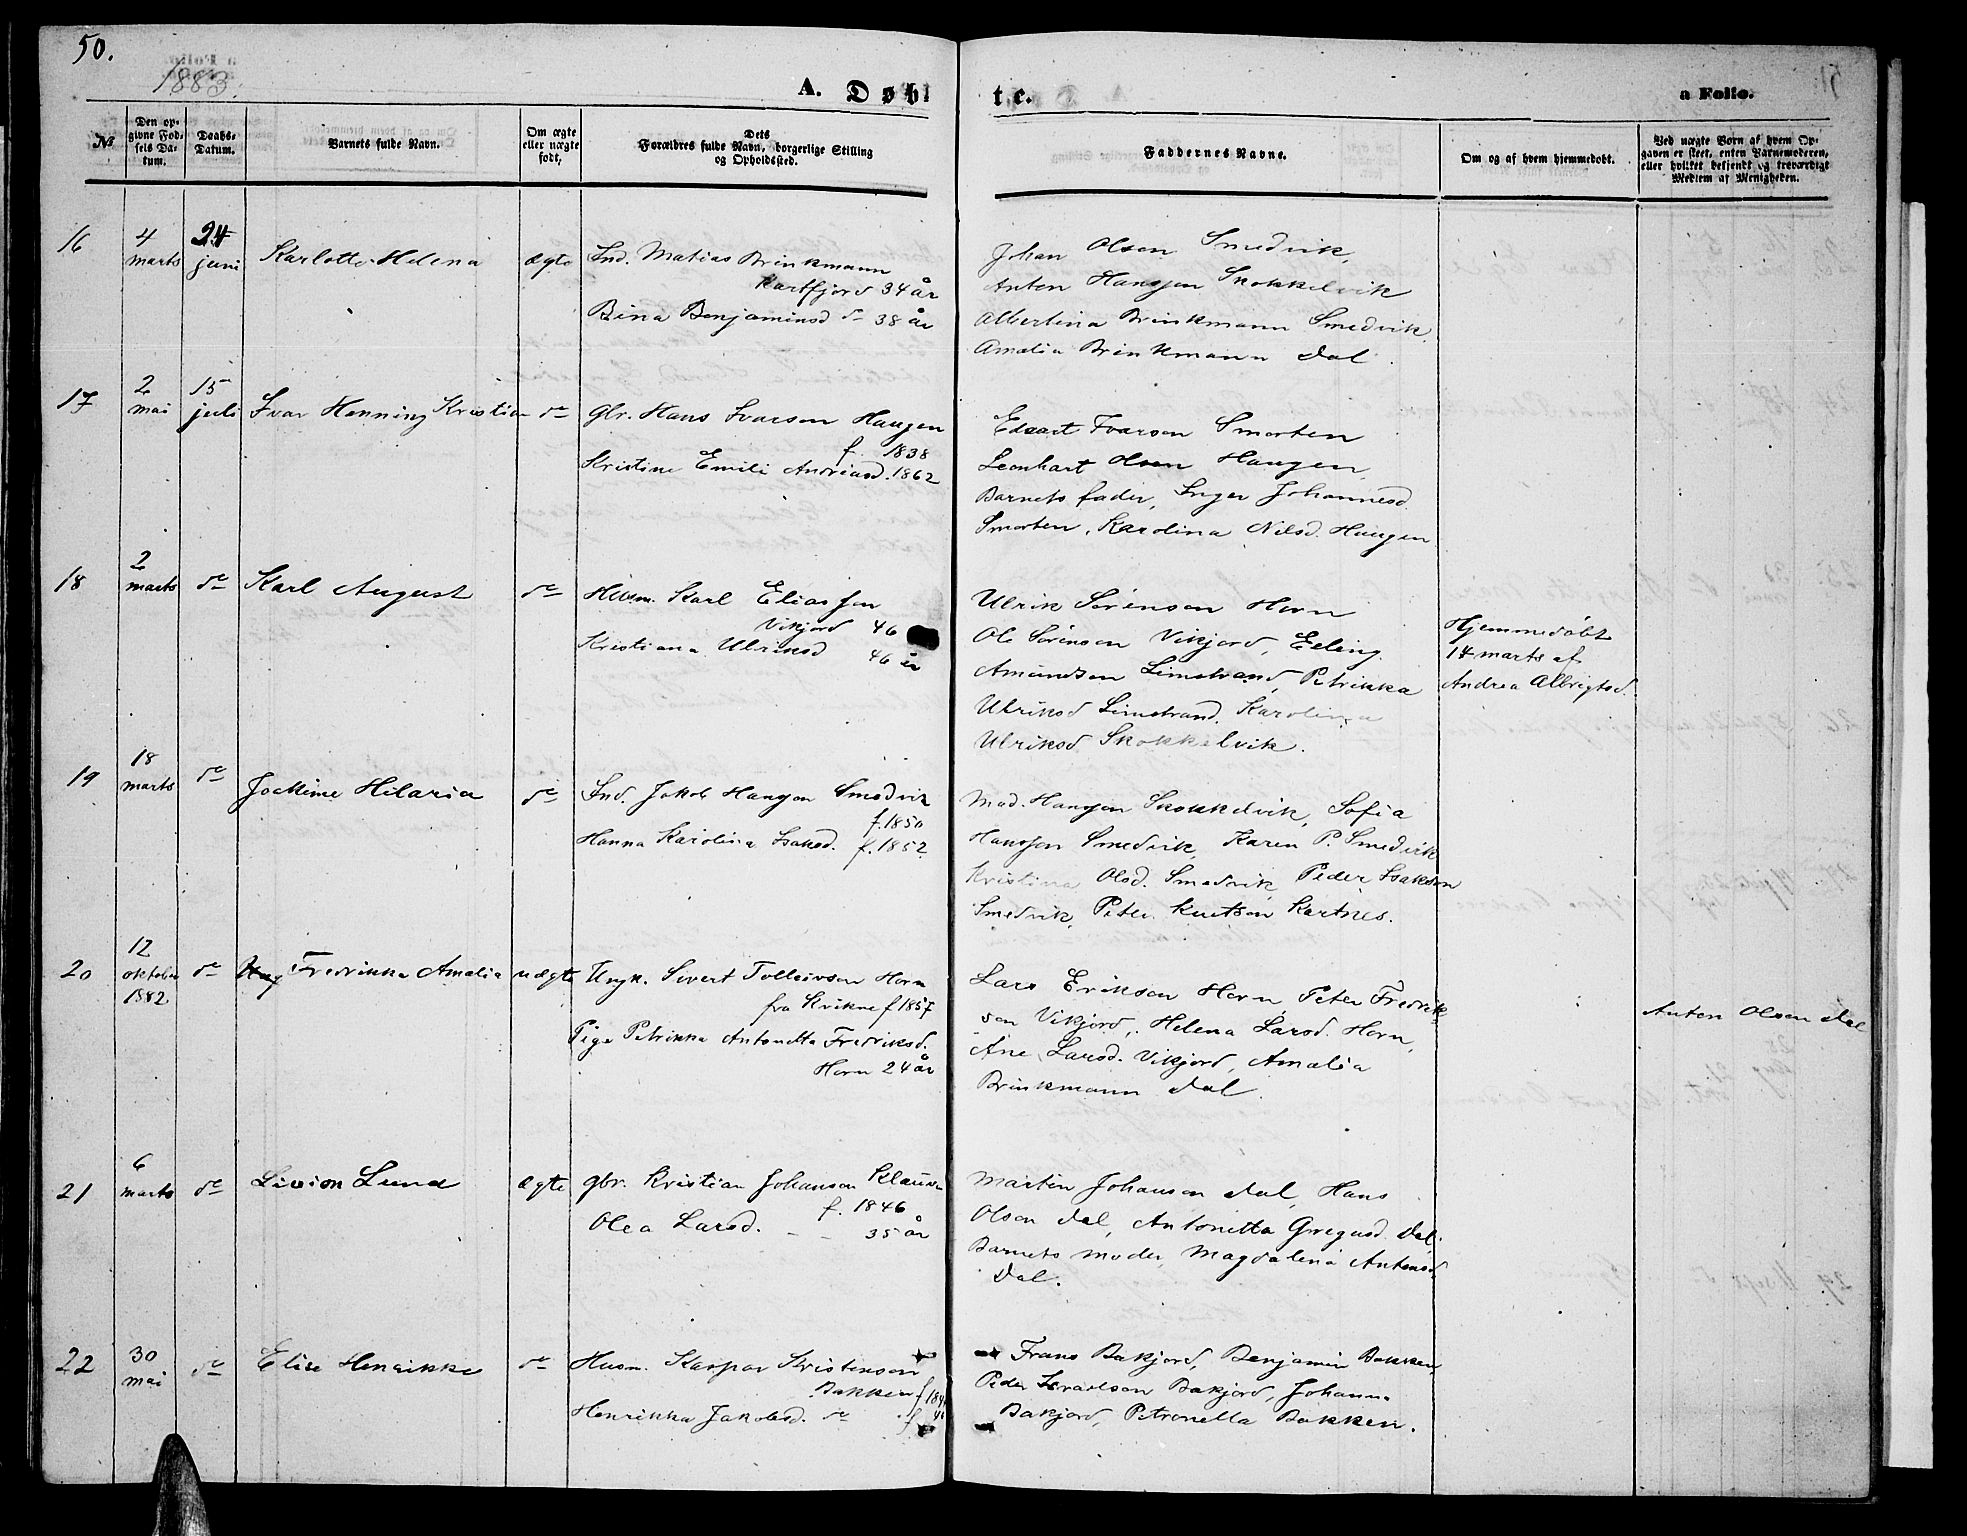 50.
1883.
A. Døbte.
a Folio.
№
Den opgivne Fødsels Datum.
Daabs-Datum.
Barnets fulde Navn.
Om ægte eller uægte født.
Dets Forældres fulde Navn, borgerlige Stilling og Opholdssted.
Faddernes Navne.
Om og af hvem hjemmedøbt.
Ved uægte Børn af hvem Opgaven er skeet, enten Barnemoderen, eller hvilket bekjendt og troværdigt Medlem af Menigheden.
16
4 marts
24 juni
Karlotte Helena
ægte
Ind. Matias Brinkmann
Kartfjord 34 år
Bina Benjaminsd do 38 år
Johan Olsen Smedvik,
Anton Hansen Skokkelvik
Albertina Brinkmann Smedvik,
Amalia Brinkmann Dal.
17
2 mai
15 juli
Ivar Henning Kristian
do
gbr. Hans Ivarson Haugen
f. 1838
Kristine Emili Andreasd. 1862
Edvart Ivarson Smorten
Leonhart Olsen Haugen,
Barnets fader, Inger Johannesd.
Smorten, Karolina Nilsd. Haugen
18
2 marts
do
Karl August
do
Husm. Karl Eliassen
Vikjord 46
Kristiana Ulriksd 46 år
Ulrik Sørenson Horn
Ole Sørenson Vikjord, Erling
Amundsen Limstrand, Petrikka
Ulriksd Limstrand. Karolina
Ulriksd Skokkelvik.
Hjemmedøbt
14 marts af
Andrea Albrigtsd.
19
18 marts
do
Jockime Hilaria
do
Ind. Jakob Hansen Smedvik
f. 1850
Hanna Karolina Isaksd. f. 1852
Mad. Hansen Skokkelvik, Sofia
Hanssen Smedvik, Karen P. Smedvik
Kristina Olsd. Smedvik, Peder Isakson
Smedvik, Peter Knutson Kartnes.
20
12 oktober 1882
do
Fredrikka Amalia
uægte
Ungk. Sivert Tolleivson Horn
fra Kvikne f 1857
Pige Petrikka Antonetta Fredriksd.
Horn 24 år
Lars Erikson Horn Peter Fredrik-
son Vikjord, Helena Larsd. Horn,
Ane Larsd. Vikjord, Amalia
Brinkmann Dal.
Anton Olsen Dal
21
6 marts
do
Livion Lund
ægte
gbr. Kristian Johanson Klausen
f. 1846
Olea Larsd. - - 35 år
Martin Johanson Dal, Hans
Olson Dal, Antonetta Gregusd. Dal,
Barnets moder, Magdalena Antonsd.
Dal.
22
30 mai
do
Elise Henrikke
do
Husm. Kaspar Kristenson
Bakken
Henrikka Jakobsd. do
Frans Bakjord, Benjamin Bakken,
Peder Israelson Bakjord, Johanna
Bakjord, Petronella Bakken.